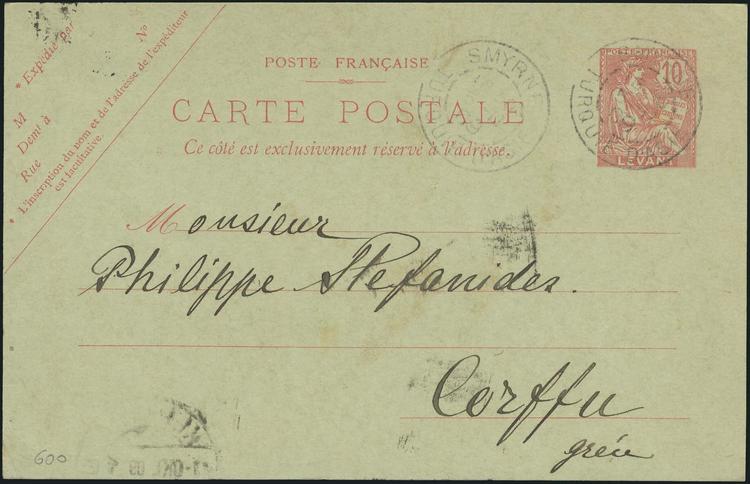 * Expédié par
No
M
Demt à
Rue
* L'inscription du nom et de l'adresse de l'expéditeur
est facultative.
POSTE FRANÇAISE
CARTE POSTALE
Ce côté est exclusivement réservé à l'adresse.
SMYRNE
POSTE FRANÇAISE
10
LEVANT
Monsieur
Philippe Stefanides.
Corffu
grèce
600